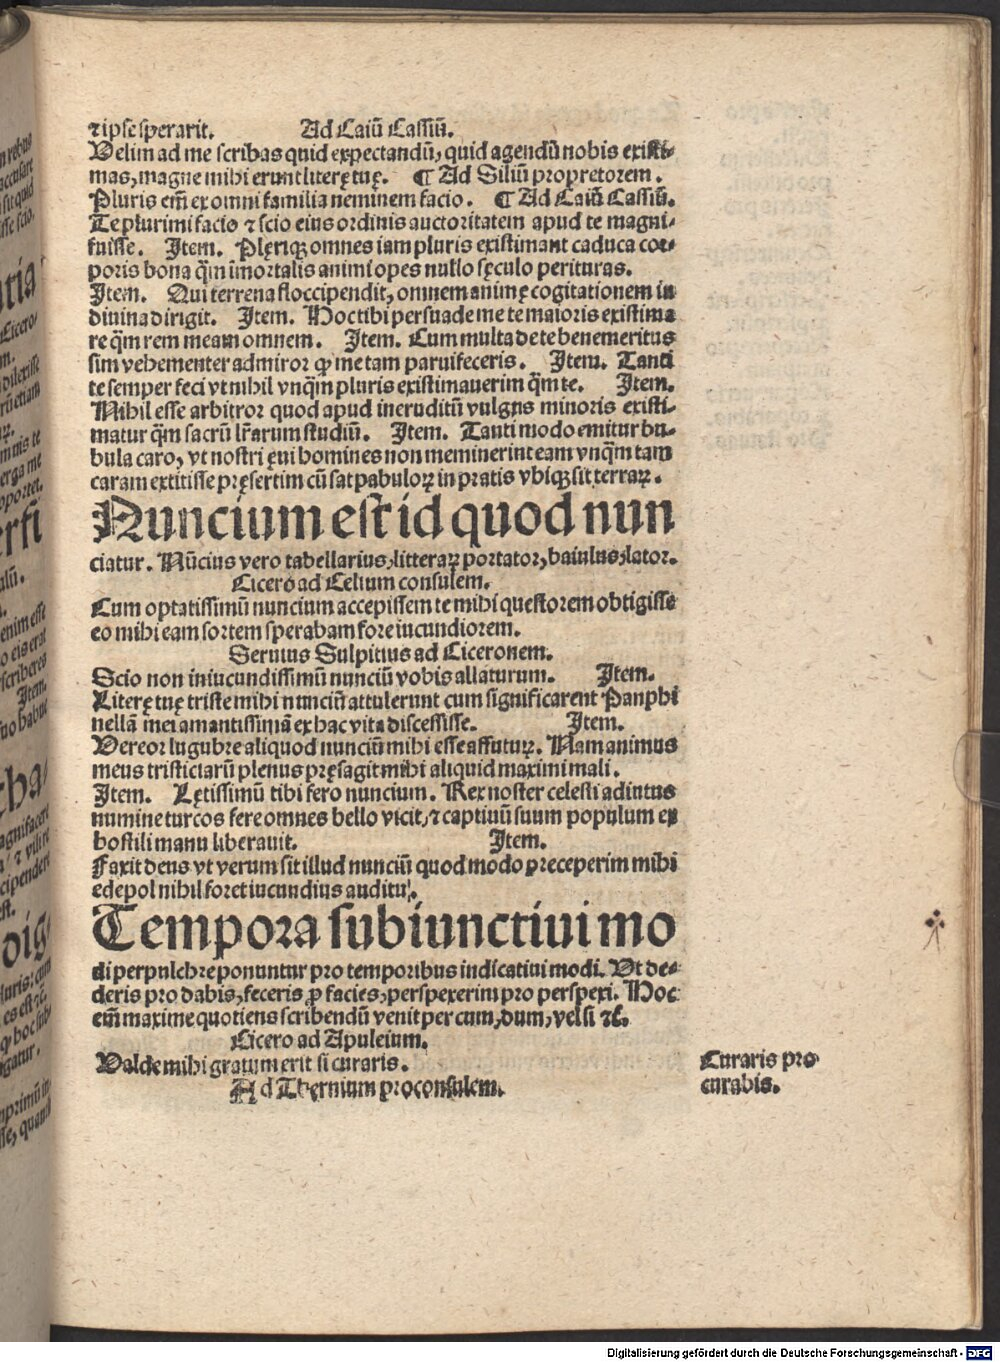 ⁊ipse sperarit. Ad Caiū Cassiū.
Velim ad me scribas quid expectandū, quid agendū nobis existi-
mas, magne mihi erunt literę tuę. ¶ Ad Siliū propretorem.
Pluris em̄ ex omni familia neminem facio. ¶ Ad Caiū Cassiū.
Te plurimi facio ⁊ scio eius ordinis auctoritatem apud te magni-
fuisse. Item. Plęriqꝫ omnes iam pluris existimant caduca cor-
poris bona q̄m īmortalis animi opes nullo sęculo perituras.
Item. Qui terrena floccipendit, omnem animę cogitationem in
diuina dirigit. Item. Hoc tibi persuade me te maioris existima
re q̄m rem meam omnem. Item. Cum multa de te benemeritus
sim vehementer admiror ꝙ me tam paruifeceris. Item. Tanti
te semper feci vt nihil vnq̄m pluris existimauerim q̄m te. Item.
Nihil esse arbitror quod apud ineruditū vulgus minoris existi-
matur q̄m sacrū lr̄arum studiū. Item. Tanti modo emitur bu-
bula caro, vt nostri ęui homines non meminerint eam vnq̄m tam
caram extitisse pręsertim cū sat pabuloꝝ in pratis vbiqꝫ sit terraꝝ.
Nuncium est id quod nun
ciatur. Nūcius vero tabellarius, litteraꝝ portator, baiulus, lator.
Cicero ad Celium consulem.
Cum optatissimū nuncium accepissem te mihi questorem obtigisse
eo mihi eam sortem sperabam fore iucundiorem.
Seruius Sulpitius ad Ciceronem.
Scio non iniucundissimū nunciū vobis allaturum. Item.
Literę tuę triste mihi nunciū attulerunt cum significarent Panphi
nellā mei amantissimā ex hac vita discessisse. Item.
Vereor lugubre aliquod nunciū mihi esse affuturꝫ. Nam animus
meus tristiciarū plenus pręsagit mihi aliquid maximi mali.
Item. Lętissimū tibi fero nuncium. Rex noster celesti adiutus
numine turcos fere omnes bello vicit, ⁊ captiuū suum populum ex
hostili manu liberauit. Item.
Faxit deus vt verum sit illud nunciū quod modo ꝑceperim mihi
edepol nihil foret iucundius auditu.
Tempora subiunctiui mo
di perpulchre ponuntur pro temporibus indicatiui modi. Vt de-
deris pro dabis, feceris ꝓ facies, perspexerim pro perspexi. Hoc
em̄ maxime quotiens scribendū venit per cum, dum, vel si ⁊c̄.
Cicero ad Apuleium.
Valde mihi gratum erit si curaris.
Curaris pro
curabis.
Ad Thermium proconsulem.
Digitalisierung gefördert durch die Deutsche Forschungsgemeinschaft - DFG